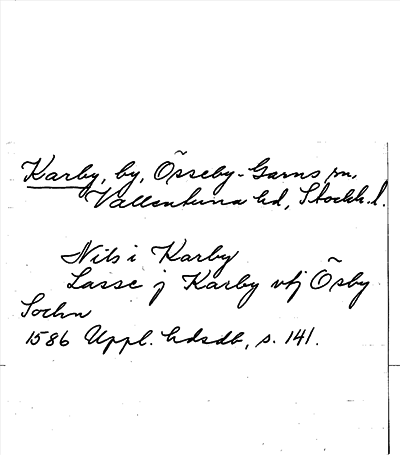 Karby, by, Össeby-Garns sn,
Vallentuna hd, Stockh. l.
Nils i Karby
Lasse j Karby vtj Õsby
Sochn
1586 Uppl. hdsdb, s. 141.